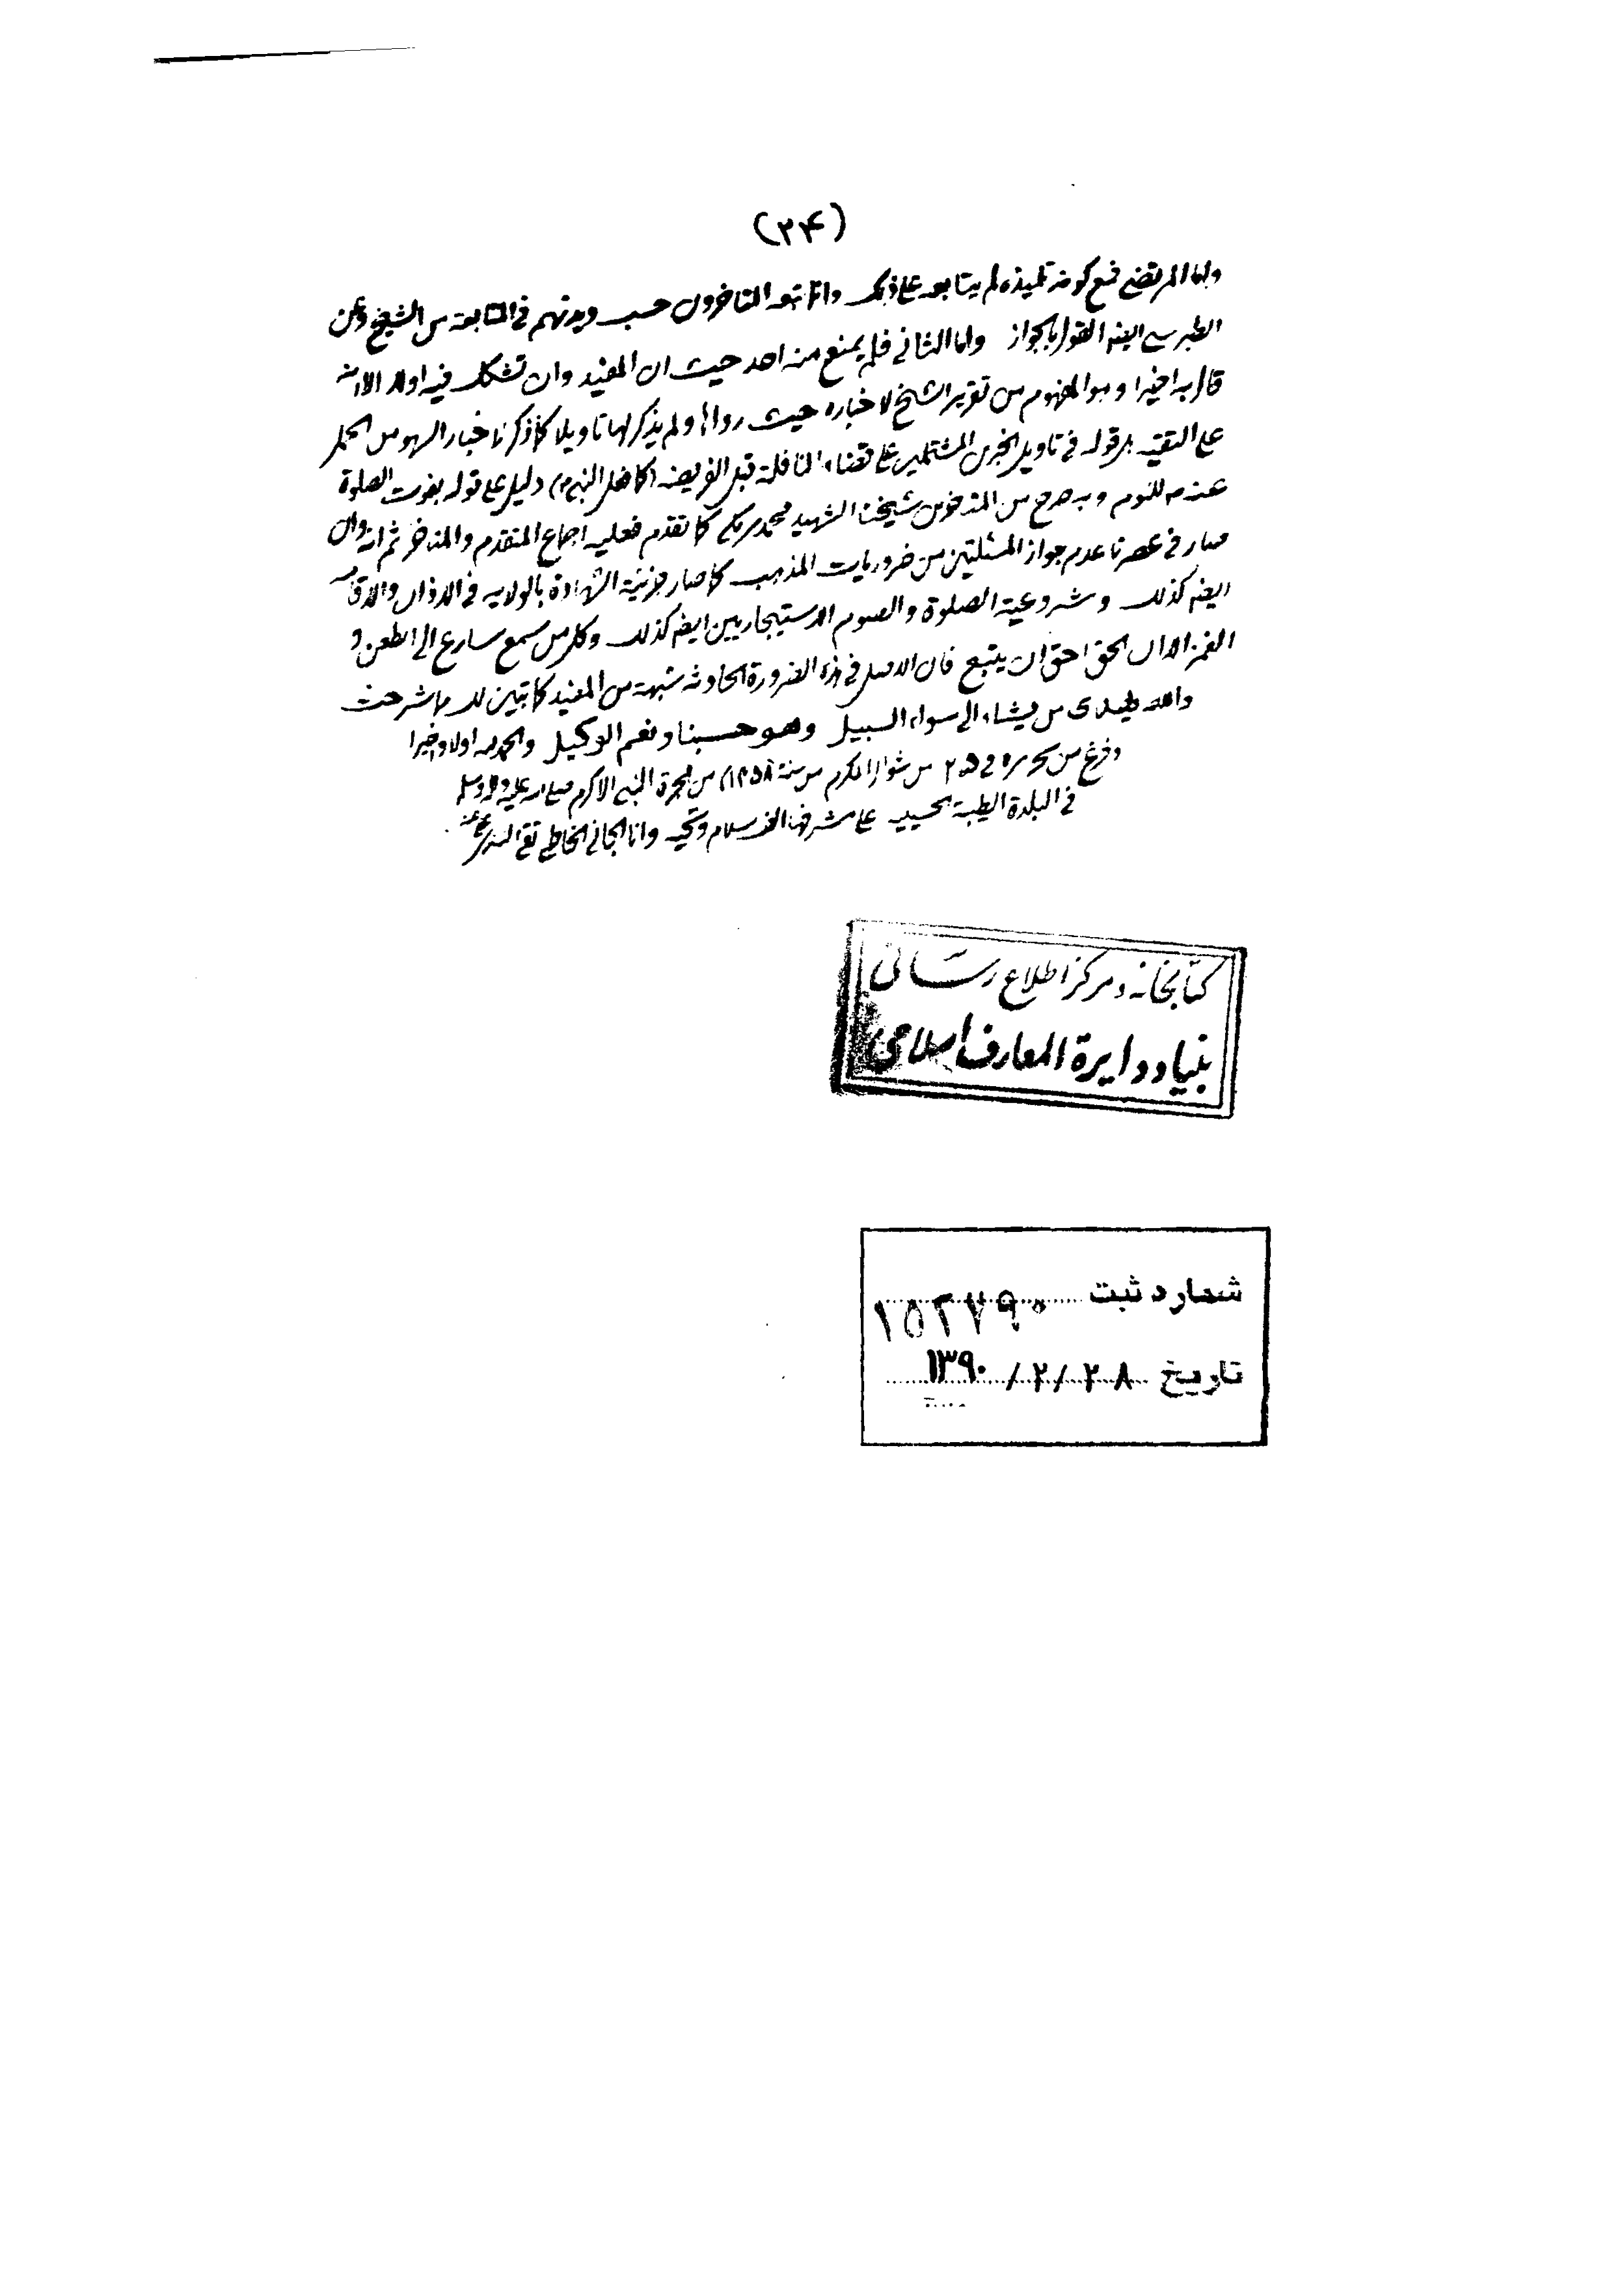 (۲۴)
واما المرتضى فمع كونه تلميذه لم يتابعه على ذلك وانما تبعه المتاخرون حسب ديدنهم في المتابعة من الشيخ وعن
الطبرسي ايضا القول بالجواز واما الثاني فلم يمنع منه احد حيث ان المفيد وان تشكك فيه اولا الا انه
قال به اخيرا وهو المفهوم من تقرير الشيخ لاخباره حيث رواها ولم يذكر لها تاويلا كما ذكر لاخبار السهو من الحمل
على التقية بل قوله في تاويل الخبرين المشتملين على قضاء النافلة قبل الفريضة (كما فعل النبي ص) دليل على قوله بفوت الصلوة
عنه ص للنوم وبه صرح من المتاخرين شيخنا الشهيد محمد بن مكي كما تقدم فعليه اجماع المتقدم والمتاخر ثم انه وان
صار في عصرنا عدم جواز المسئلتين من ضروريات المذهب كما صار جزئية الشهادة بالولاية في الاذان والاقامة
ايضا كذلك ومشروعية الصلوة والصوم الاستيجاريين ايضا كذلك وكل من سمع سارع الى الطعن و
الغمز الا ان الحق احق ان يتبع فان الاصل في هذه الضرورة الحادثة شبهة من المفيد كما تبين لك مما شرحت
والله يهدى من يشاء الى سواء السبيل وهو حسبنا ونعم الوكيل والحمد لله اولا واخيرا
وفرغ من تحريره في ۲۵ من شوال المكرم من سنة ۱۳۵۸ من هجرة النبي الاكرم صلى الله عليه واله وسلم
في البلدة الطيبة الحسينية على مشرفها الف سلام وتحية وانا الجاني الخاطي تقي التستري عفي عنه
كتابخانه و مركز اطلاع رسانى
بنياد دايرة المعارف اسلامى
شماره ثبت ۱۵۲۷۹۰
تاريخ ۱۳۹۰/۲/۲۸